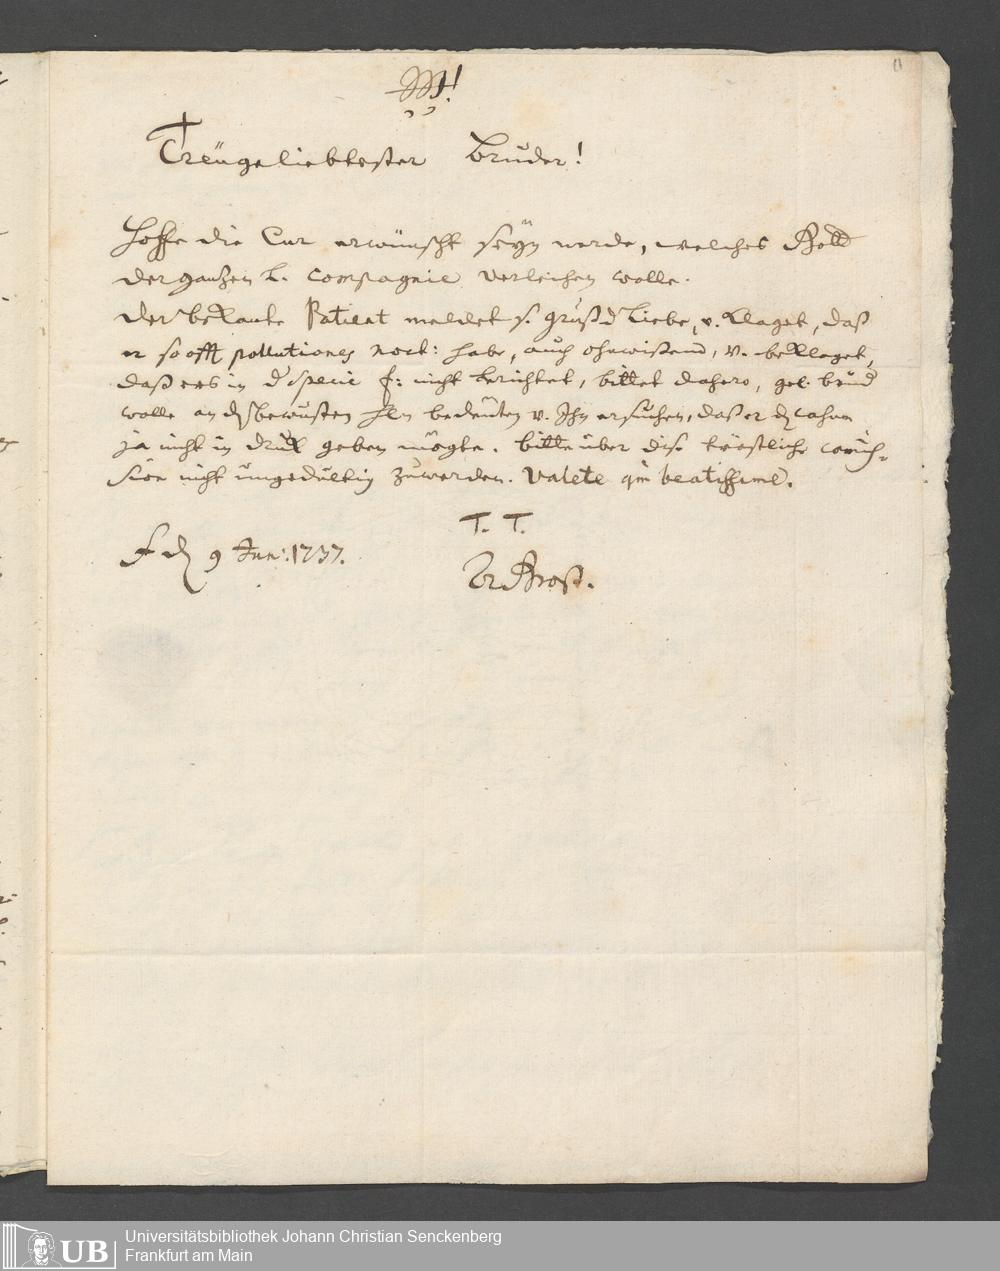 Treügeliebtester Bruder!
Hoffe die Cur erwünscht seÿn werde, welches Gott
der gantzen l. Compagnie verleihen wolle.
Der bekante Patient meldet s. gruß Liebe, v. klaget, daß
er so offt pollutiones noct: habe, auch ohnwißend, v. beklaget,
daß ers in specie f: nicht berichtet, bittet dahero, gel. brud
wolle an bewusten bedeüten v. Ihn ersuchen, daß er
ja nicht in druk geben mögte. bitte über dise tröstliche
nicht ungedultig zu werden. Valete qm beatissime.
T. T.
F d 9 Jun: 1737.
Dr Groß.
UB
Universitätsbibliothek Johann Christian Senckenberg
Frankfurt am Main